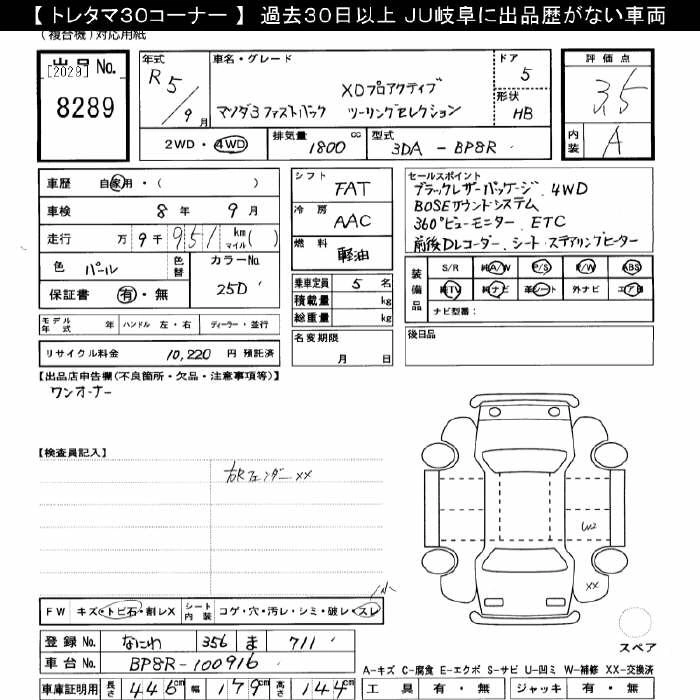 【 トレタマ30コーナー 】 過去30日以上 JU岐阜に出品歴がない車両
(複合機)対応用紙
出品No.
[2029]
8289
年式
R 5/9月
車名・グレード
XDプロアクティブ
マツダ3 ファストバック ツーリングセレクション
ドア
5
形状
HB
評価点
3.5
内装
A
2WD・4WD
排気量
1800 cc
型式
3DA - BP8R
車歴 自家用・( )
車検 8年 9月
走行 万 9千 951 km マイル ( )
色 パール 色替
カラーNo.
25D
保証書 有・無
シフト
FAT
冷房
AAC
燃料
軽油
乗車定員 5 名
積載量 kg
総重量 kg
名変期限
月 日
セールスポイント
ブラックレザーパッケージ、4WD
BOSEサウンドシステム
360°ビューモニター、ETC
前後Dレコーダー、シート・ステアリングヒーター
装備品
S/R 純A/W P/S P/W ABS
純TV 純ナビ 革シート 外ナビ エアB
ナビ型番:
後日品
モデル年式 年 ハンドル 左・右 ディーラー・並行
リサイクル料金 10,220 円 預託済
【出品店申告欄(不良箇所・欠品・注意事項等)】
ワンオーナー
【検査員記入】
右Rフェンダー XX
W2
XX
FW キズ・トビ石・割レX シート内装 コゲ・穴・汚レ・シミ・破レ・スレ
小
スペア
登録No. なにわ 356 ま 711
車台No. BP8R-100916
A-キズ C-腐食 E-エクボ S-サビ U-凹ミ W-補修 XX-交換済
車庫証明用 長さ 446cm 幅 179cm 高さ 144cm
工具 有・無 ジャッキ 有・無